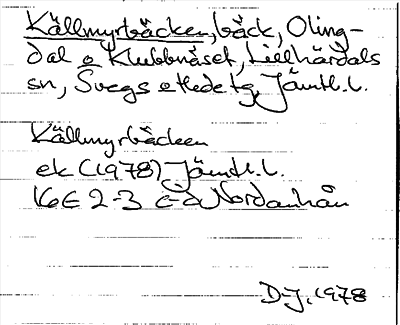 Källmyrbäcken, bäck, Oling-
dal o Klubbnäset, Lillhärdals
sn, Svegs o Hede tg, Jämtl.l.
Källmyrbäcken
ek (1978) Jämtl.l.
16E 2-3 c-d Nordanhån
D-J, 1978